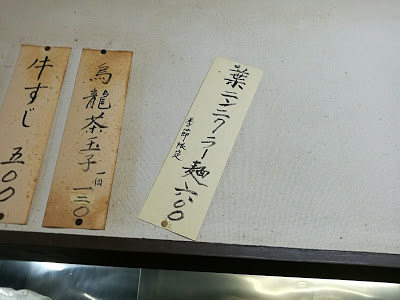 葉ニンニクラー麺 六〇〇
季節限定
烏龍茶玉子 一個 一二〇
牛すじ 五〇〇